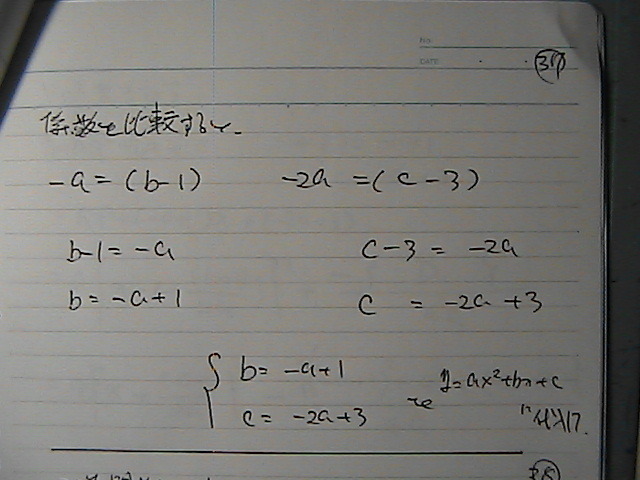 NO.
DATE
37
係数を比較すると、
-a=(b-1) -2a =(c-3)
b-1=-a c-3 = -2a
b=-a+1 c = -2a+3
b= -a+1
c= -2a+3
を y=ax²+bx+c
に代入.
38